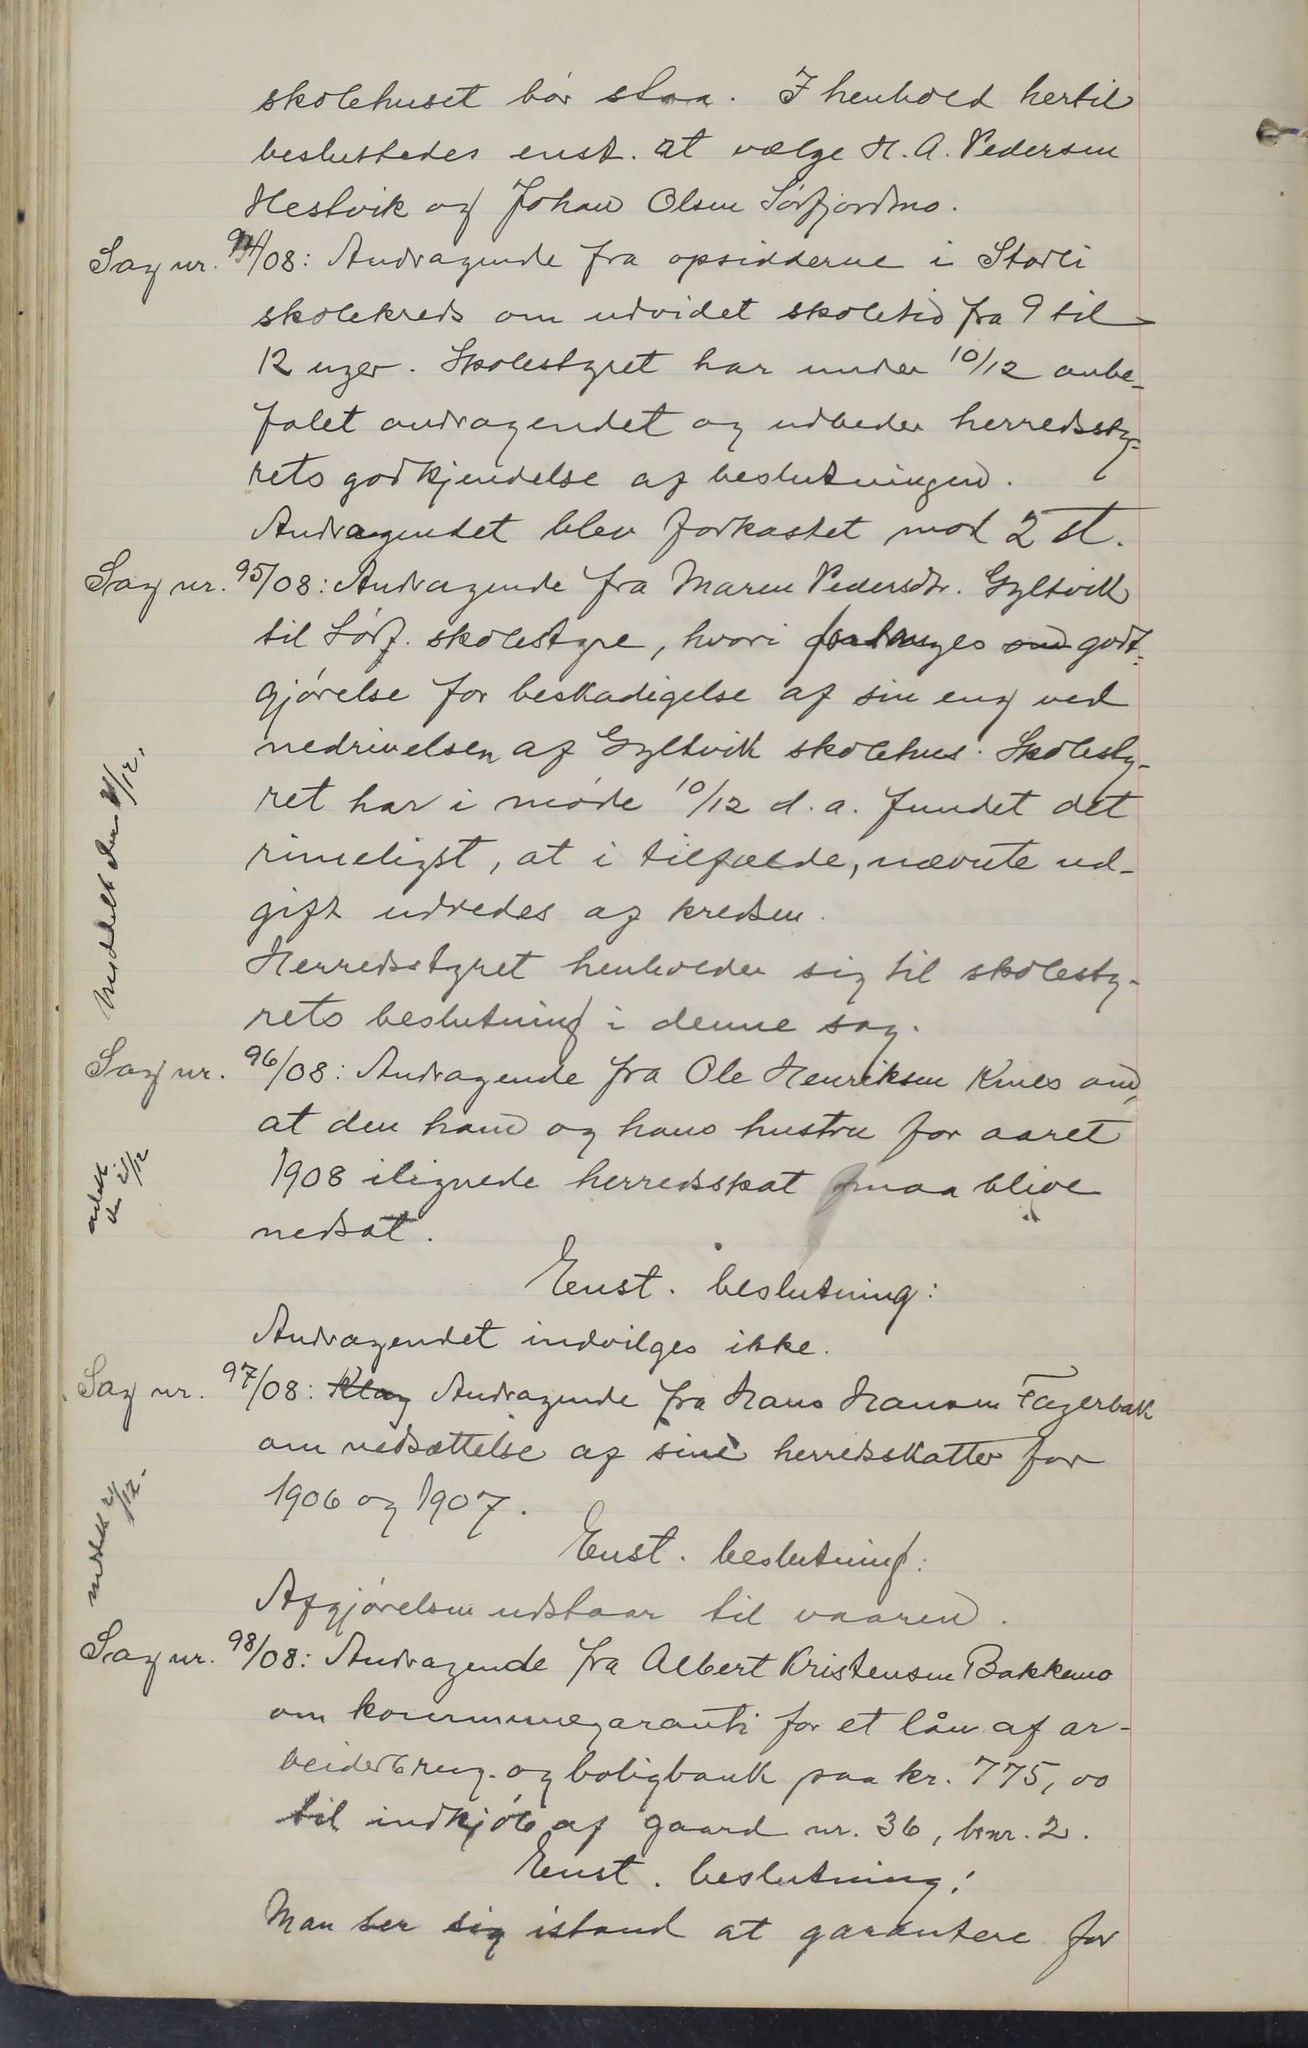 skolehuset bör staa. I henhold hertil
beslustedes enst. at vælge H. A. Pedersen
Hestvik og Johan Olsen Sörfjordmo.
Sag nr. 94/08: Andragende fra opsidderne i Storli
skolekreds om udvidet skoletid fra 9 til
12 uger. Skolestyret har under 10/12 anbe-
falet andragendet og udbeder herredssty-
rets godkjendelse af beslutningen.
Andragendet blev forkastet mod 2 st.
Sag nr. 95/08: Andragende fra Maren Pedersdtr. Gyltvik
til Sörf. skolestyre, hvori forlanges godt-
gjörelse for beskadigelse af sin eng ved
nedrivelsen af Gyltvik skolehus. Skolesty-
ret har i möde 10/12 d. a. fundet det
rimeligst, at i tilfælde, nævnte ud-
gift udredes af kredsen.
Herredsstyret henholder sig til skolesty-
rets beslutning i denne sag.
Meddelt den 21/12.
Sag nr. 96/08: Andragende fra Ole Henriksen Kines om,
at den ham og hans hustru for aaret
1908 ilignede herredsskat maa blive
nedsat.
Enst. beslutning:
Andragendet indvilges ikke.
medelt den 21/12
Sag nr. 97/08: Klag Andragende fra Hans Hansen Fagerbak
om nedsættelse af sine herredsskatter for
1906 og 1907.
Enst. beslutning:
Afgjörelsen udstaar til vaaren.
meddelt 21/12.
Sag nr. 98/08: Andragende fra Albert Kristensen Bakkemo
om kommunegaranti for et lån af ar-
beiderbrug- og boligbank paa kr. 775,00
til indkjöb af gaard nr. 36, brnr. 2.
Enst. beslutning:
Man ser sig istand at garantere for